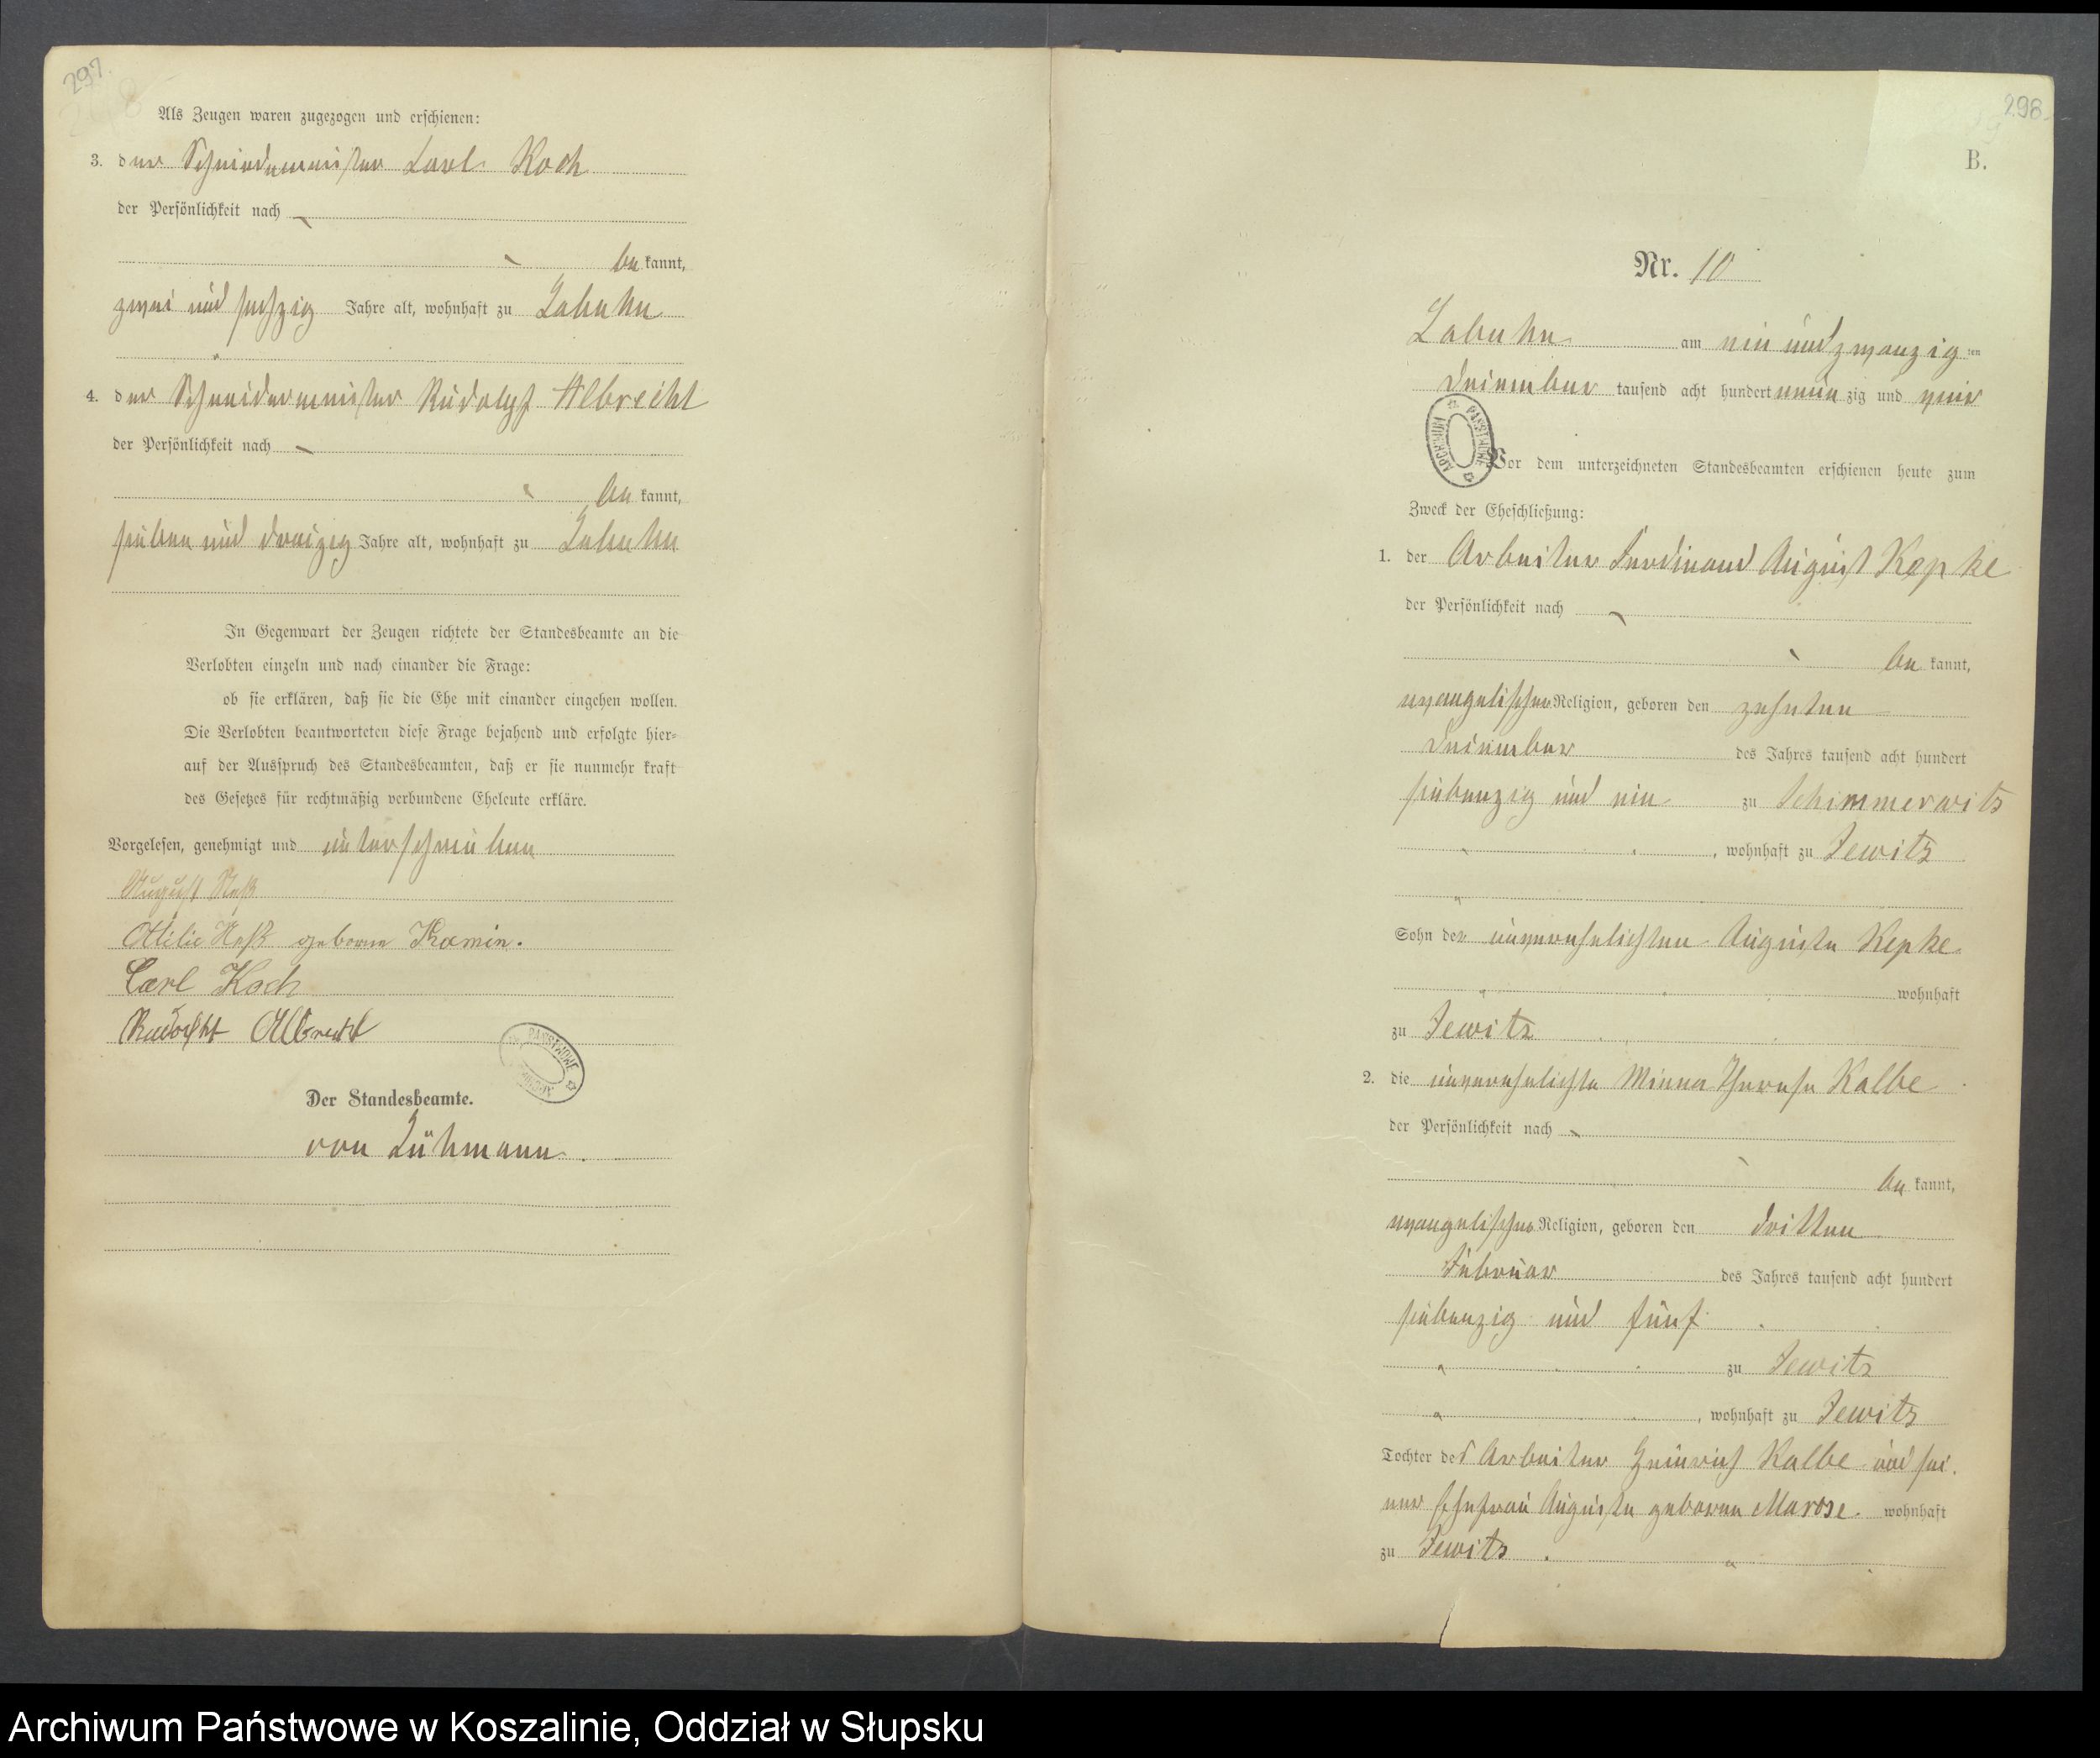 297.
Als Zeugen waren zugezogen und erschienen:
3. der Schmiedemeister Carl Koch
der Persönlichkeit nach
bekannt,
zwei und sechzig Jahre alt, wohnhaft zu Labuhn
4. der Schneidermeister Rudolph Albrecht
der Persönlichkeit nach
bekannt,
sieben und dreizig Jahre alt, wohnhaft zu Labuhn
In Gegenwart der Zeugen richtete der Standesbeamte an die
Verlobten einzeln und nach einander die Frage:
ob sie erklären, daß sie die Ehe mit einander eingehen wollen.
Die Verlobten beantworteten diese Frage bejahend und erfolgte hier-
auf der Ausspruch des Standesbeamten, daß er sie nunmehr kraft
des Gesetzes für rechtmäßig verbundene Eheleute erkläre.
Vorgelesen, genehmigt und unterschrieben
August
Ottilie geborene Kamin.
Carl Koch
Albrecht
Der Standesbeamte.
von Lühmann.
298.
B.
Nr. 10
Labuhn am ein und zwanzigten
Dezember tausend acht hundert neunzig und
Vor dem unterzeichneten Standesbeamten erschienen heute zum
Zweck der Eheschließung:
1. der Arbeiter Ferdinand August Kepke
der Persönlichkeit nach
bekannt,
evangelischer Religion, geboren den zehnten
Dezember des Jahres tausend acht hundert
siebenzig und ein zu Schimmerwitz
, wohnhaft zu Jewitz
Sohn der unverehelichten Auguste Kepke
wohnhaft
zu Jewitz
2. die unverehelichte Minna Therese Kalbe
der Persönlichkeit nach
bekannt,
evangelischer Religion, geboren den dritten
Februar des Jahres tausend acht hundert
siebenzig und fünf
zu Jewitz
, wohnhaft zu Jewitz
Tochter des Arbeiter Heinrich Kalbe und sei-
ner Ehefrau Auguste geborene Marose wohnhaft
zu Jewitz
ARCHIWUM PAŃSTWOWE
Archiwum Państwowe w Koszalinie, Oddział w Słupsku